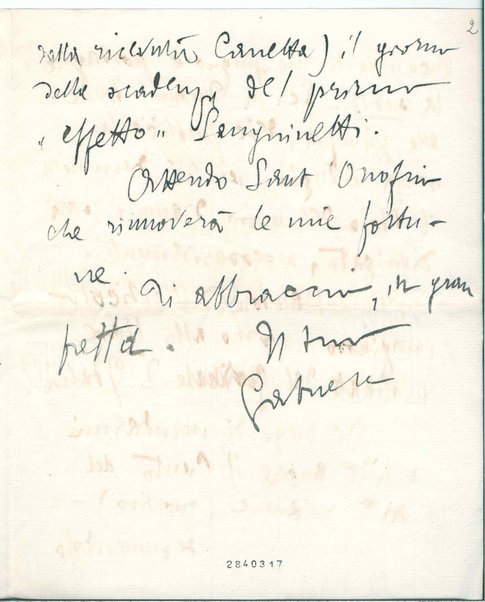 2
dalla ricevuta Canetta) il giorno
della scadenza del primo
"effetto" Sanguinetti.
Attendo Sant'Onofrio
che rinnoverà le mie fortu-
ne.
Ti abbraccio, in gran
fretta. Il tuo
Gabriele
2840317